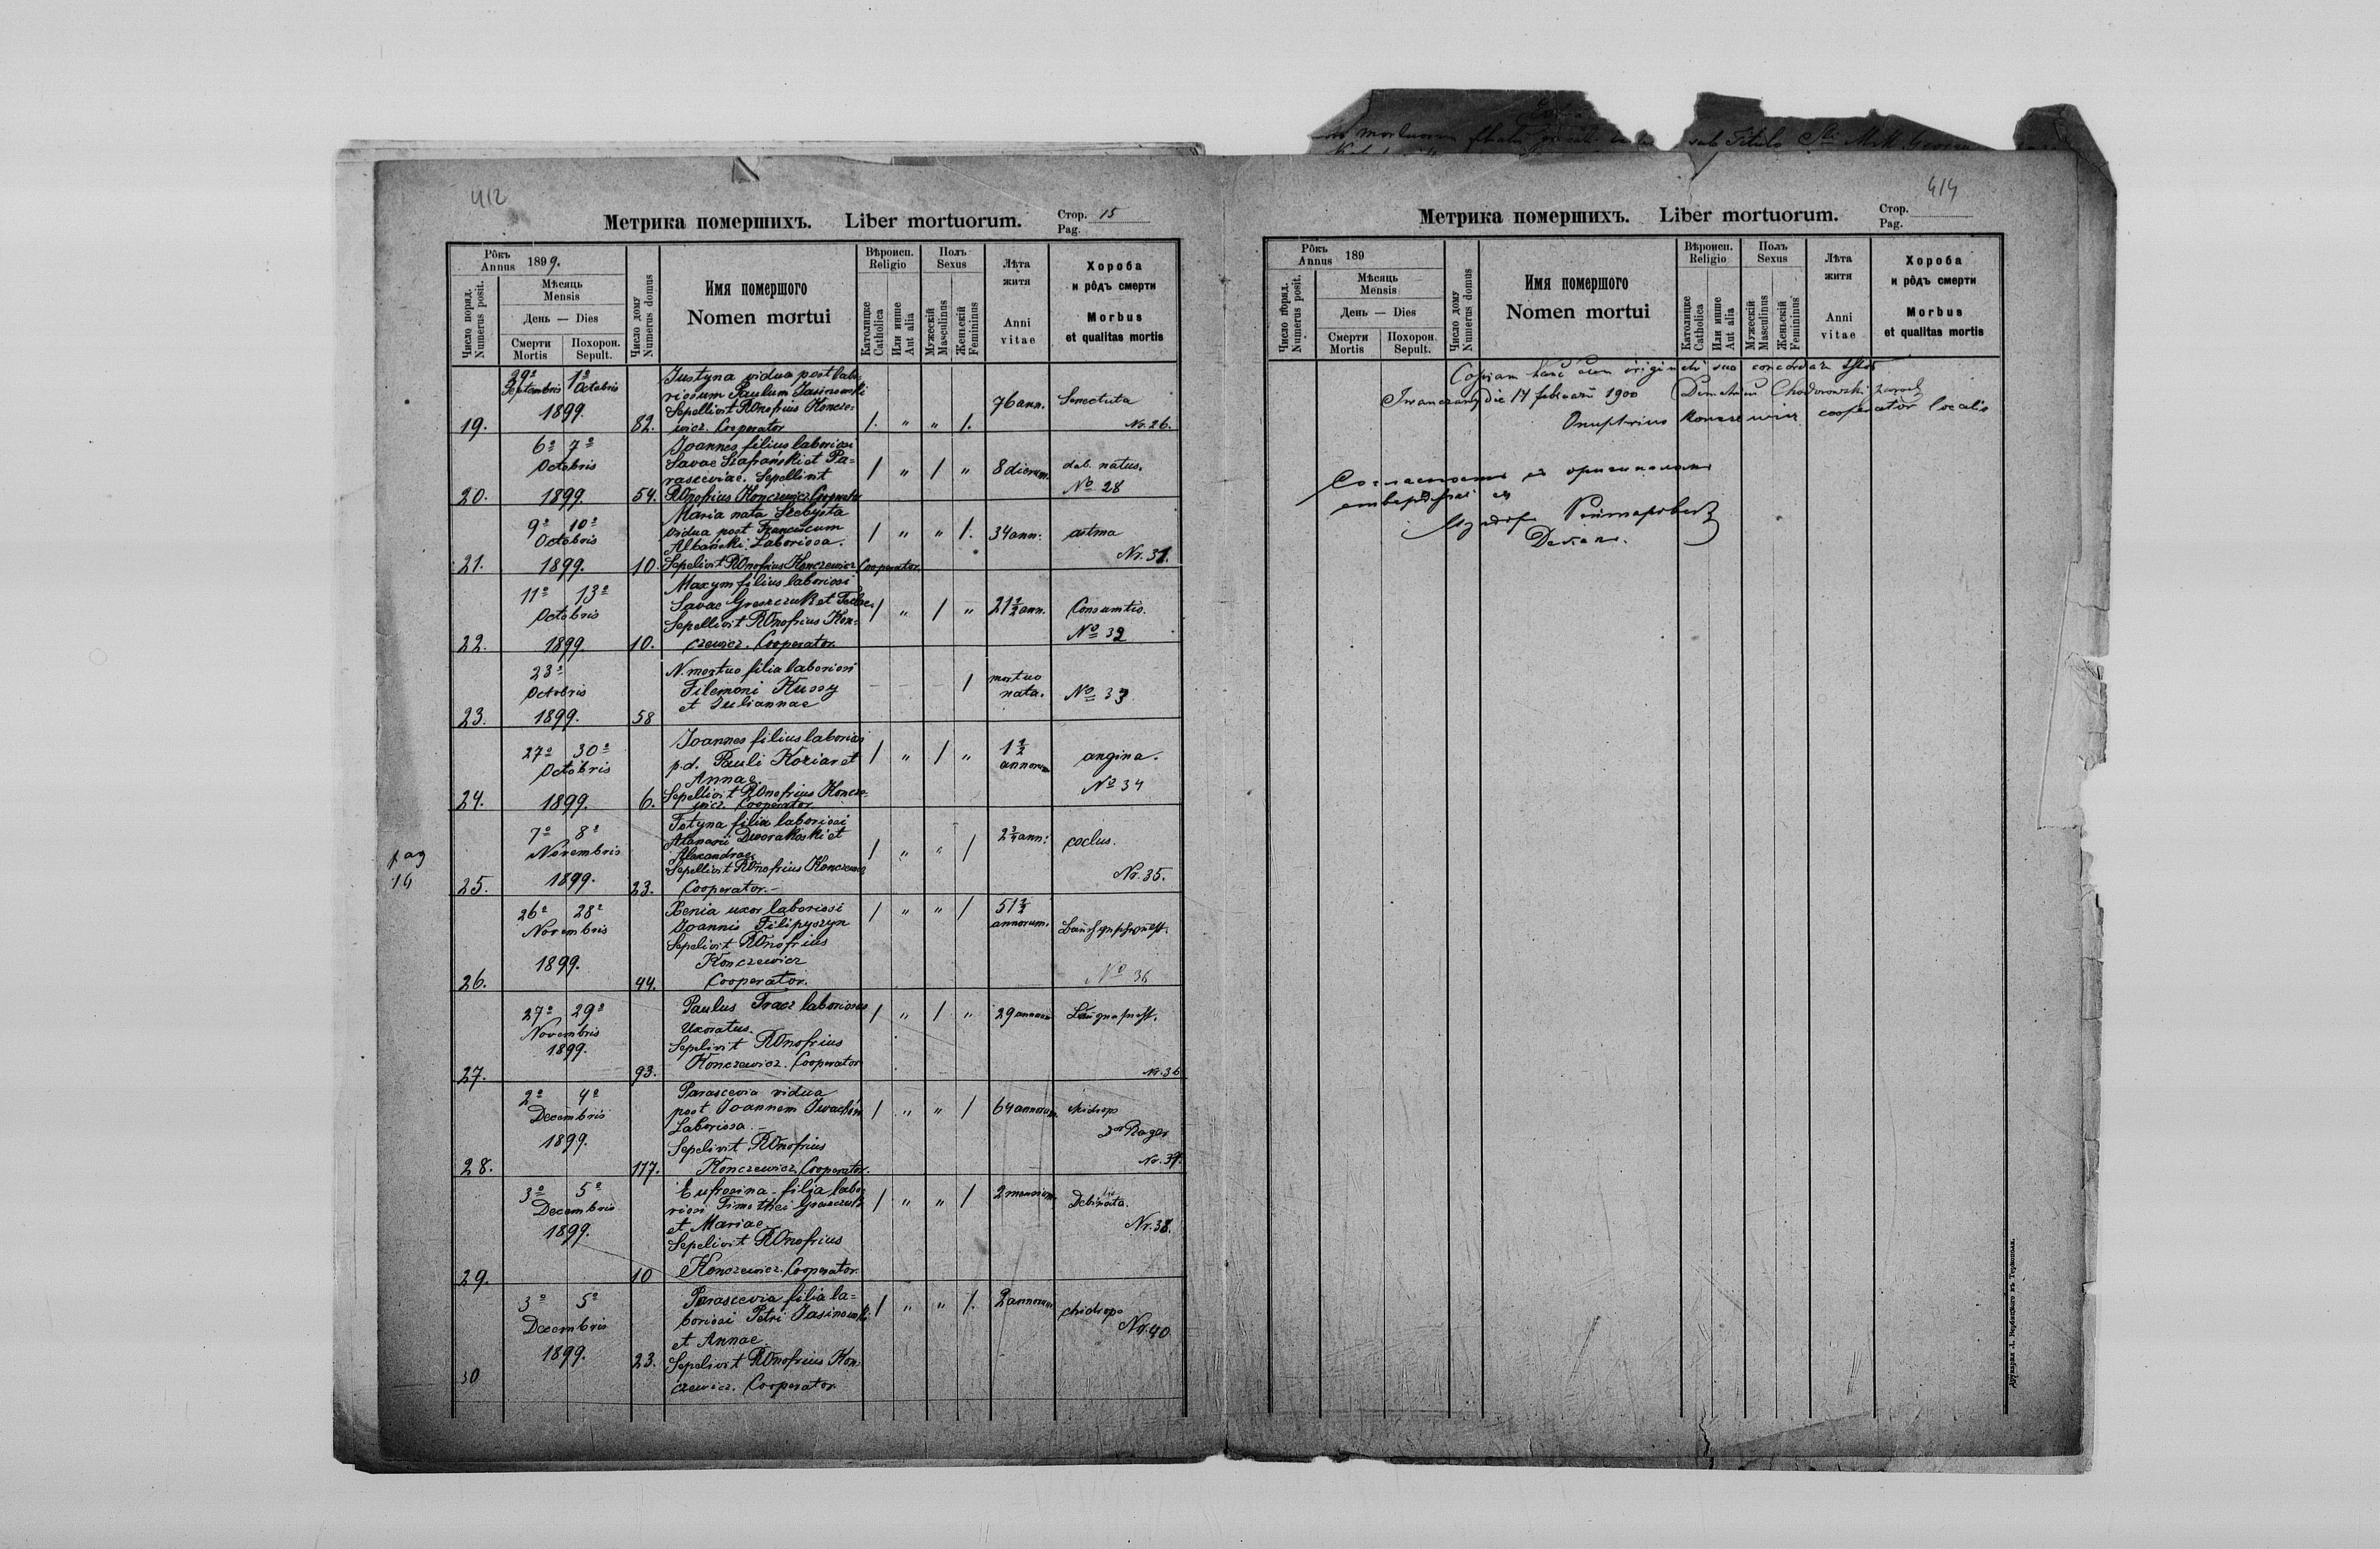 412
Метрика помершихъ. Liber mortuorum.
Стор. 15
Pag.
Рôкъ
Annus 1899.
Число поряд.
Numerus posit.
Мѣсяць
Mensis
День — Dies
Смерти
Mortis
Похорон.
Sepult.
Число дому
Numerus domus
Имя помершого
Nomen mortui
Вѣроисп.
Religio
Католицке
Catholica
Или инше
Aut alia
Полъ
Sexus
Мужескій
Masculinus
Женьскій
Femininus
Лѣта
житя
Anni
vitae
Хороба
и рôдъ смерти
Morbus
et qualitas mortis
19.
29º 1º
Septembris Octobris
1899.
82.
Justyna vidua post labo-
riosum Paulum Jasinowski
Sepellivit ROnofrius Koncze-
wicz. Cooperator
1. " " 1.
76 ann.
Senectuta
Nr. 26.
20.
6º 7º
Octobris
1899.
54.
Joannes filius laboriosi
Savae Szafrański et Pa=
rasceviae. Sepellivit
ROnofrius Konczewicz Cooperator
/ " / "
8 dierum.
deb. natus.
Nº 28
21.
9º 10º
Octobris
1899.
10.
Maria nata
vidua post Franciscum
Albański. Laboriosa.
Sepelivit ROnofrius Konczewicz Cooperator.
/ " " /.
34 ann:
astma
Nr. 31.
22.
11º 13º
Octobris
1899.
10.
Maxym filius laboriosi
Savae Greszczuk et Teclae.
Sepellivit ROnofrius Kon-
czewicz. Cooperator.
/ " / "
21½ ann.
Consumtio.
Nº 32
23.
23º
Octobris
1899.
58
N. mortuo filia laboriosi
Filemoni Kussy
et Juliannae
/
mortuo
nata.
Nº 33
24.
27º 30º
Octobris
1899.
6.
Joannes filius laboriosi
p.d. Pauli Koziar et
Annae.
Sepellivit ROnofrius Koncze-
wicz. Cooperator
/ " / "
1½
annorum
angina.
Nº 34
pag
14
25.
7º 8º
Novembris
1899.
23.
Tatyna filia laboriosi
Atanasii Dworakoski et
Alexandrae
Sepellivit ROnofrius Konczewicz
Cooperator.-
/ " " /
ann:
coclus.
Nr. 35.
26.
26º 28º
Novembris
1899.
44.
Xenia uxor laboriosi
Joannis Filipyszyn
Sepelivit ROnofrius
Konczewicz
Cooperator.
/ " " /
51½
annorum.
Nº 36
27.
27º 29º
Novembris
1899.
93.
Paulus Tracz laboriosus
Uxoratus.
Sepelivit ROnofrius
Konczewicz. Cooperator
/ " / "
29 annorum
Nr. 36
28.
2º 4º
Decembris
1899.
117.
Parascevia vidua
post Joannem Iwachin
Laboriosa.-
Sepelivit ROnofrius
Konczewicz Cooperator.
/ " " /
64 annorum.
chidrops
Nr. 37.
29.
3º 5º
Decembris
1899.
10
Eufrosina filia labo-
riosi Timothei Greszczuk
et Mariae
Sepelivit ROnofrius
Konczewicz. Cooperator.
/ " " /
2 mensium
Nr. 38.
30
3º 5º
Decembris
1899.
23.
Parascevia filia la=
boriosi Petri Jasinowski
et Annae
Sepelivit ROnofrius Kon-
czewicz. Cooperator.
/ " " /.
2 annorum
chidrops
Nr. 40
mortuorum sub Titulo Sti M.M.
414
Метрика помершихъ. Liber mortuorum.
Стор.
Pag.
Рôкъ
Annus 189
Число поряд.
Numerus posit.
Мѣсяць
Mensis
День — Dies
Смерти
Mortis
Похорон.
Sepult.
Число дому
Numerus domus
Имя помершого
Nomen mortui
Вѣроисп.
Religio
Католицке
Catholica
Или инше
Aut alia
Полъ
Sexus
Мужескій
Masculinus
Женьскій
Femininus
Лѣта
житя
Anni
vitae
Хороба
и рôдъ смерти
Morbus
et qualitas mortis
Copiam hanc cum originali suo concordare
die 17 februarii 1900 Chodorowski
Onuphrius Konczewicz cooperator localis
оригиналомъ
Декан.
Друкарня Л. Вербицкого въ Тернополи.